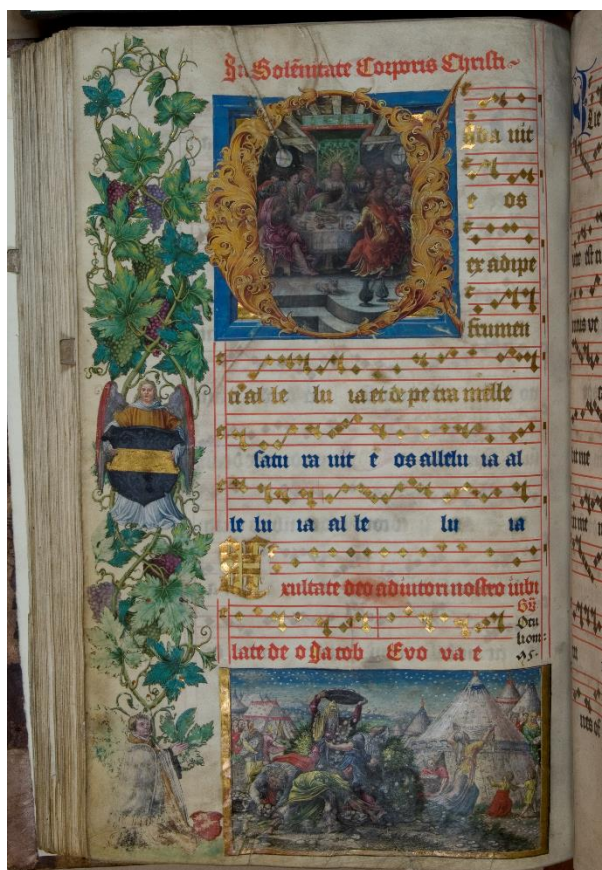 In Solēnitate Corporis Christi
Ciba uit
e os
ex adipe
frumen
ti al le lu ia et de pe tra melle
satu ra uit e os allelu ia al
le lu ia al le lu ia
Exultate deo adiutori nostro iubi
late de o Jacob Evo va e